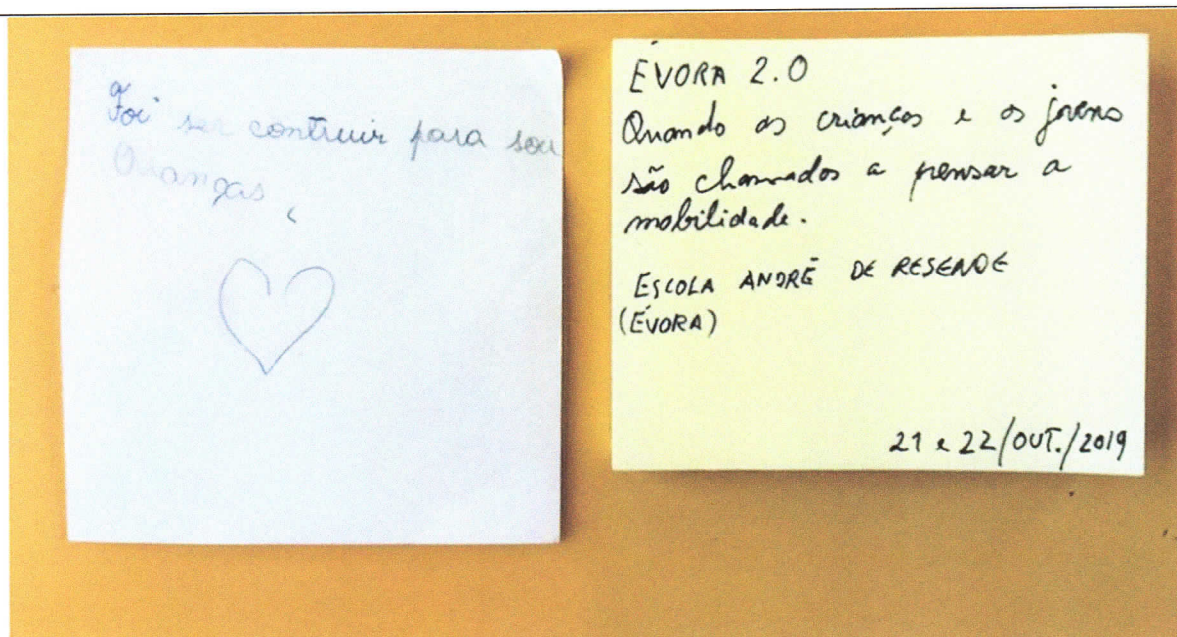 Foi ser contruir para sou
Crianças
ÉVORA 2.0
Quando as crianças e os jovens
são chamados a pensar a
mobilidade.
ESCOLA ANDRÉ DE RESENDE
(ÉVORA)
21 e 22/OUT./2019